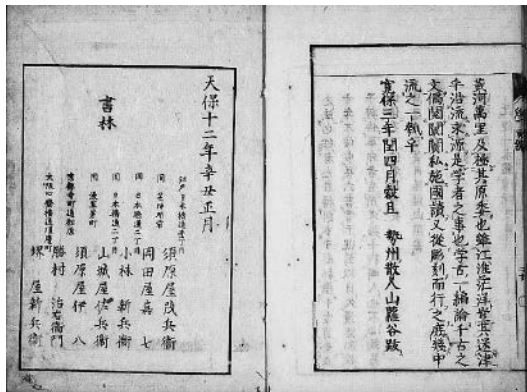 黄河萬里及極其原委也雖江淮茫洋豈其迷津
乎沿流求源是学者之事也学古一編論千古之
文偶閲私施國讀又從彫刻而行之庶幾中
流之一瓠乎
寛保三年閏四月穀旦 勢州散人山蘿谷跋
天保十二年辛丑正月
書林
江戸日本橋通壹丁目 須原屋茂兵衛
同 芝神明前 岡田屋嘉七
同 日本橋通二丁目 小林新兵衛
同 日本橋通二丁目 山城屋佐兵衛
同 浅草茅町 須原屋伊八
京都寺町通松原 勝村治右衛門
大阪心斎橋通 堺屋新兵衛